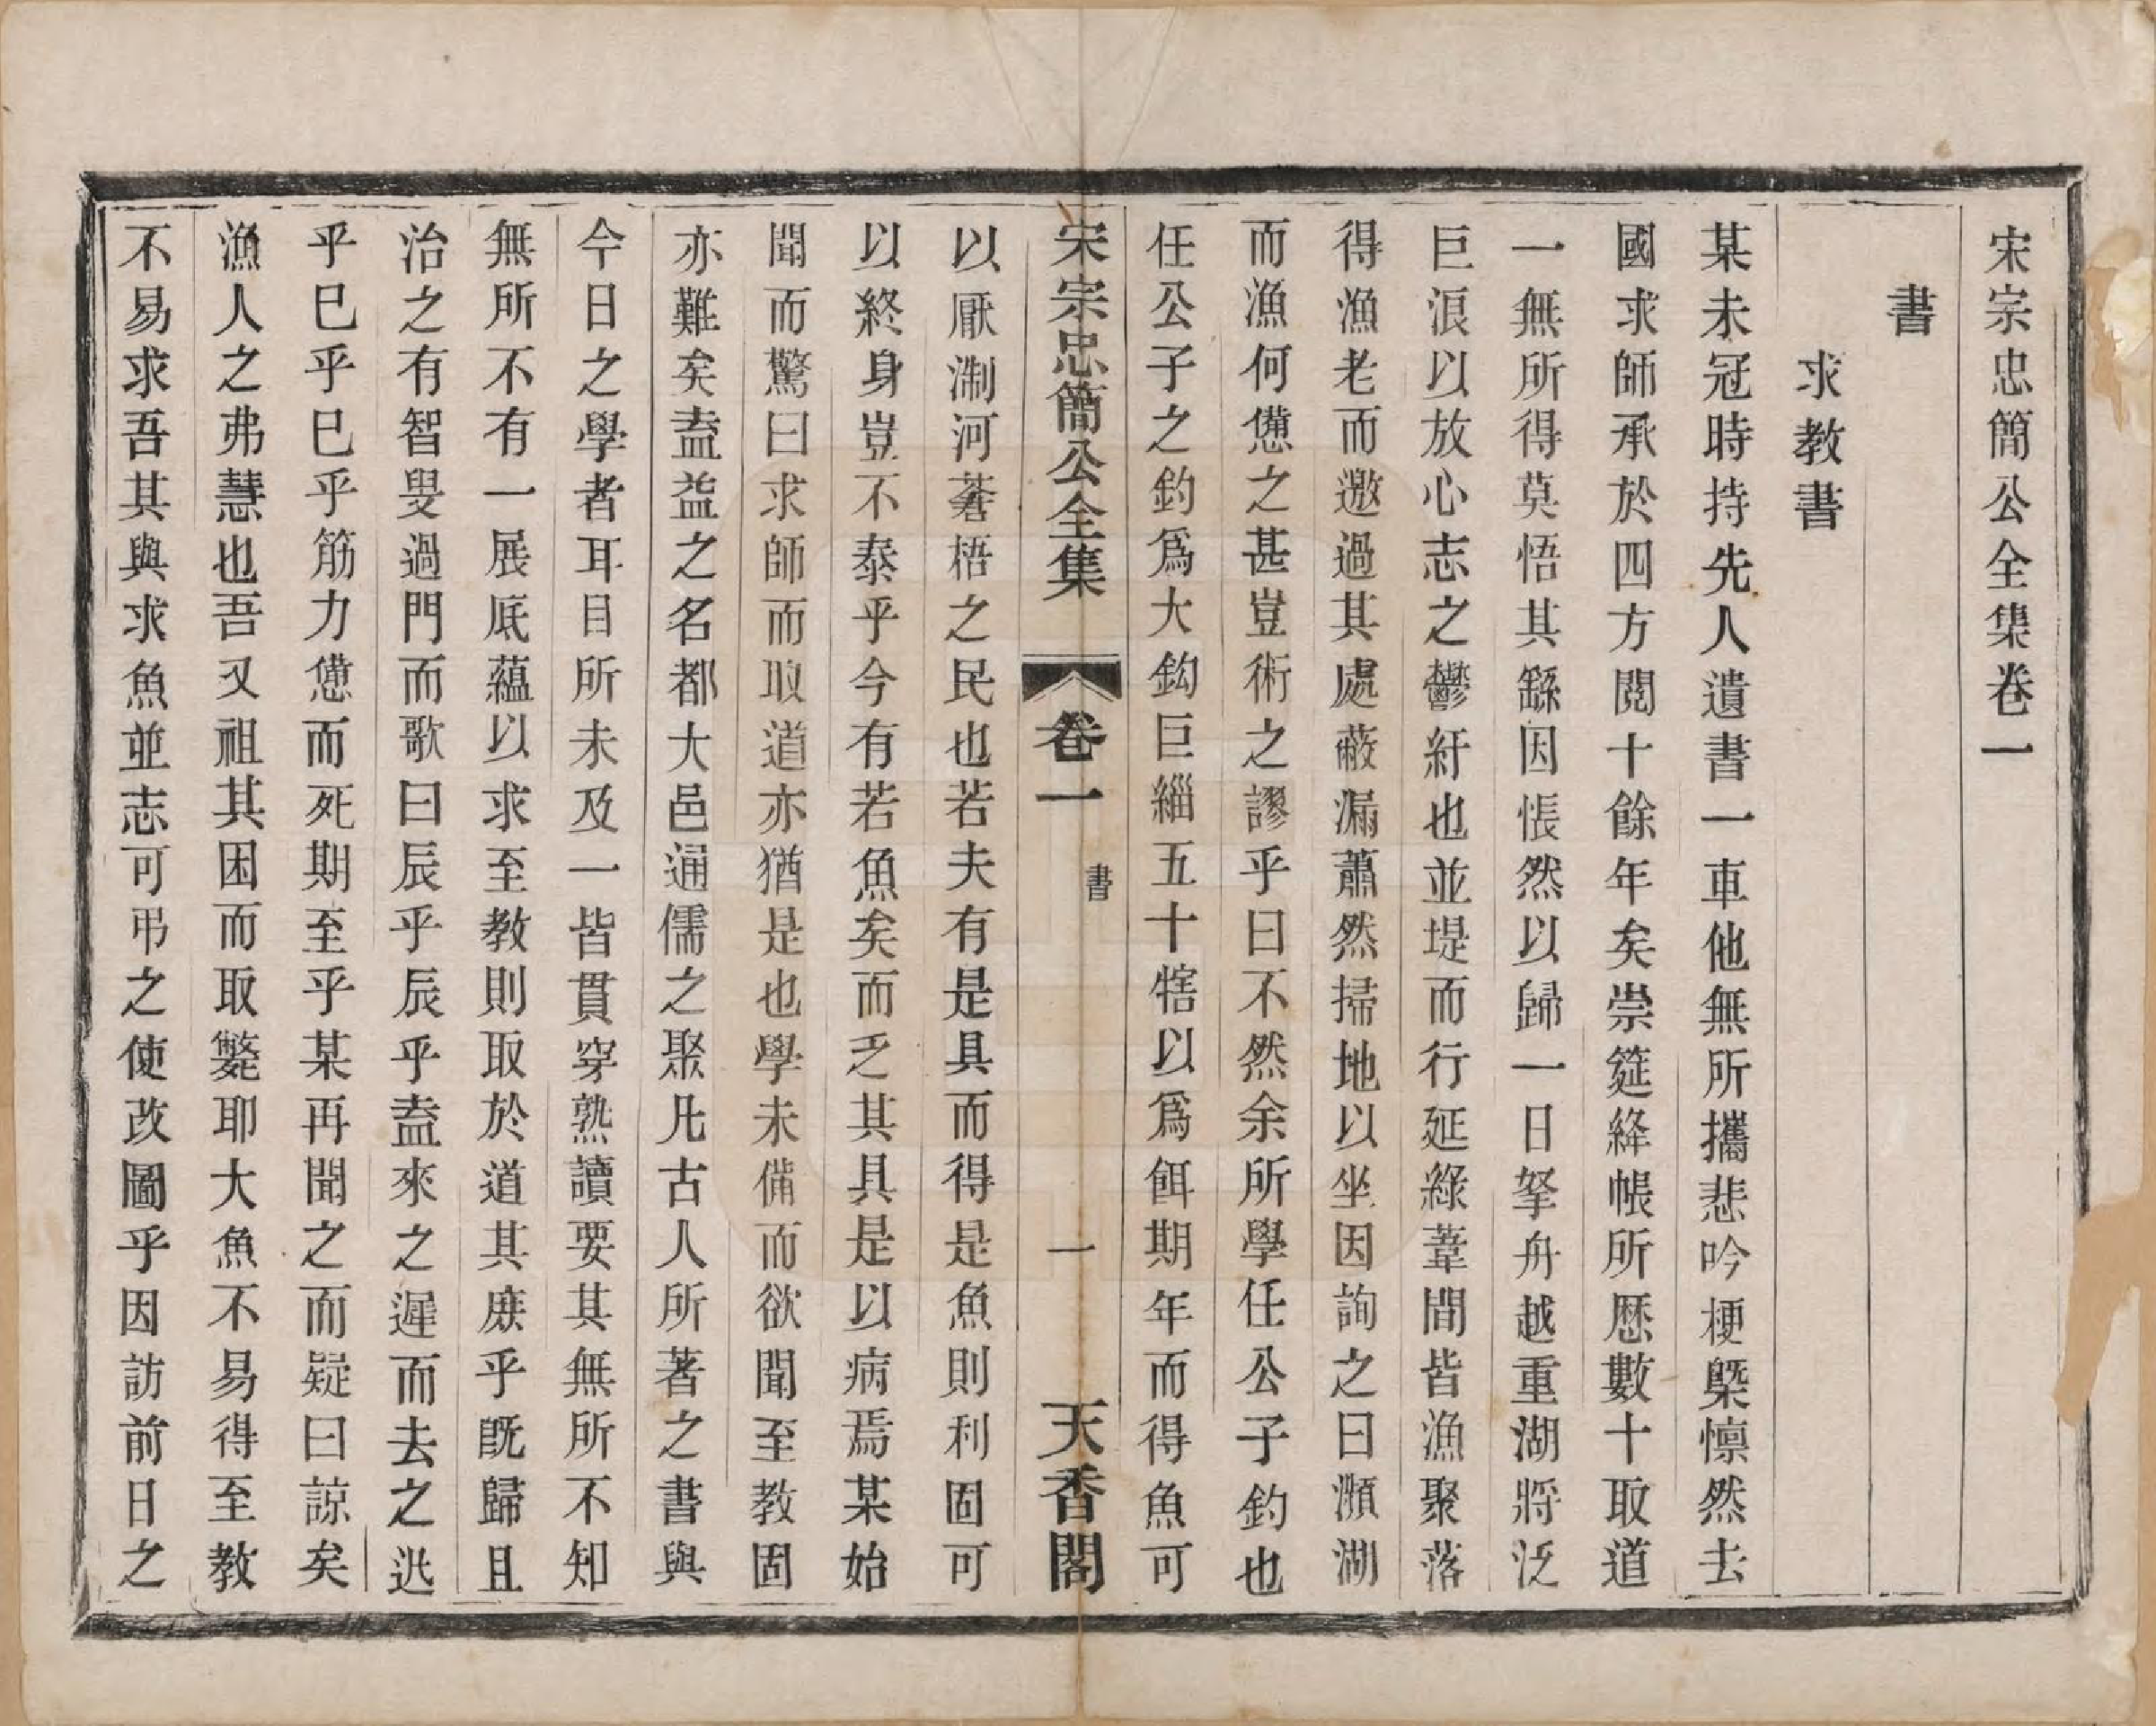 宋宗忠簡公全集卷一
書
求教書
某未冠時持先人遺書一車他無所攜悲吟梗槩懍然去
國求師承於四方閱十餘年矣崇筵絳帳所歷數十取道
一無所得莫悟其繇因悵然以歸一日拏舟越重湖將泛
巨浪以放心志之鬱紆也並堤而行延綠葦間皆漁聚落
得漁老而邀過其處蔽漏蕭然掃地以坐因詢之曰瀕湖
而漁何憊之甚豈術之謬乎曰不然余所學任公子釣也
任公子之釣爲大鈎巨緇五十犗以爲餌期年而得魚可
宋宗忠簡公全集 卷一 書 一 天香閣
以厭淛河蒼梧之民也若夫有是具而得是魚則利固可
以終身豈不泰乎今有若魚矣而乏其具是以病焉某始
聞而驚曰求師而取道亦猶是也學未備而欲聞至教固
亦難矣盍益之名都大邑通儒之聚凡古人所著之書與
今日之學者耳目所未及一皆貫穿熟讀要其無所不知
無所不有一展底蘊以求至教則取於道其庶乎旣歸且
治之有智叟過門而歌曰辰乎辰乎盍來之遲而去之迯
乎已乎已乎筋力憊而死期至乎某再聞之而疑曰諒矣
漁人之弗慧也吾又祖其困而取斃耶大魚不易得至教
不易求吾其與求魚並志可弔之使改圖乎因訪前日之